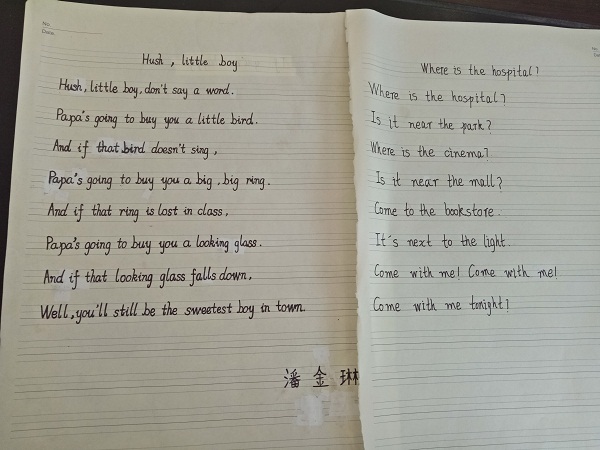 No.
Date.
Hush, little boy
Hush, little boy, don't say a word.
Papa's going to buy you a little bird.
And if that bird doesn't sing,
Papa's going to buy you a big, big ring.
And if that ring is lost in class,
Papa's going to buy you a looking glass.
And if that looking glass falls down,
Well, you'll still be the sweetest boy in town.
潘金琳
No.
Where is the hospital?
Where is the hospital?
Is it near the park?
Where is the cinema?
Is it near the mall?
Come to the bookstore.
It's next to the light.
Come with me! Come with me!
Come with me tonight?